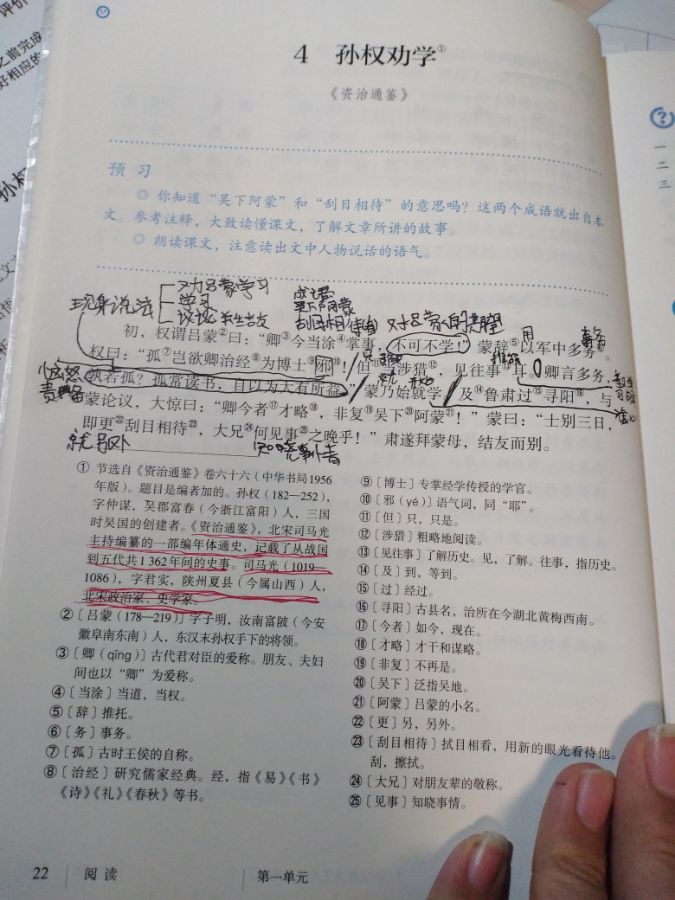 评价
之前完成
好相应的
孙权
4 孙权劝学①
《资治通鉴》
预习
◎ 你知道“吴下阿蒙”和“刮目相待”的意思吗？这两个成语就出自本
文。参考注释，大致读懂课文，了解文章所讲的故事。
◎ 朗读课文，注意读出文中人物说话的语气。
现身说法
劝吕蒙学习
学习
议论
成语
吴下阿蒙
刮目相待
对吕蒙的期望
用
初，权谓吕蒙②曰：“卿③今当涂④掌事，不可不学！”蒙辞⑤以军中多务⑥。
权曰：“孤⑦岂欲卿治经⑧为博士⑨邪⑩！但⑪当涉猎⑫，见往事⑬耳。卿言多务，
孰若孤？孤常读书，自以为大有所益。”蒙乃始就学。及⑭鲁肃过⑮寻阳⑯，与
蒙论议，大惊曰：“卿今者⑰才略⑱，非复⑲吴下⑳阿蒙㉑！”蒙曰：“士别三日，
即更㉒刮目相待㉓，大兄㉔何见事㉕之晚乎！”肃遂拜蒙母，结友而别。
就 另外
① 节选自《资治通鉴》卷六十六（中华书局1956
年版）。题目是编者加的。孙权（182—252），
字仲谋，吴郡富春（今浙江富阳）人，三国
时吴国的创建者。《资治通鉴》，北宋司马光
主持编纂的一部编年体通史，记载了从战国
到五代共1 362年间的史事。司马光（1019—
1086），字君实，陕州夏县（今属山西）人，
北宋政治家、史学家。
②〔吕蒙（178—219）〕字子明，汝南富陂（今安
徽阜南东南）人，东汉末孙权手下的将领。
③〔卿（qīng）〕古代君对臣的爱称。朋友、夫妇
间也以“卿”为爱称。
④〔当涂〕当道，当权。
⑤〔辞〕推托。
⑥〔务〕事务。
⑦〔孤〕古时王侯的自称。
⑧〔治经〕研究儒家经典。经，指《易》《书》
《诗》《礼》《春秋》等书。
⑨〔博士〕专掌经学传授的学官。
⑩〔邪（yé）〕语气词，同“耶”。
⑪〔但〕只，只是。
⑫〔涉猎〕粗略地阅读。
⑬〔见往事〕了解历史。见，了解。往事，指历史。
⑭〔及〕到，等到。
⑮〔过〕经过。
⑯〔寻阳〕古县名，治所在今湖北黄梅西南。
⑰〔今者〕如今，现在。
⑱〔才略〕才干和谋略。
⑲〔非复〕不再是。
⑳〔吴下〕泛指吴地。
㉑〔阿蒙〕吕蒙的小名。
㉒〔更〕另，另外。
㉓〔刮目相待〕拭目相看，用新的眼光看待他。
刮，擦拭。
㉔〔大兄〕对朋友辈的敬称。
㉕〔见事〕知晓事情。
22 阅读 第一单元
一
二
三